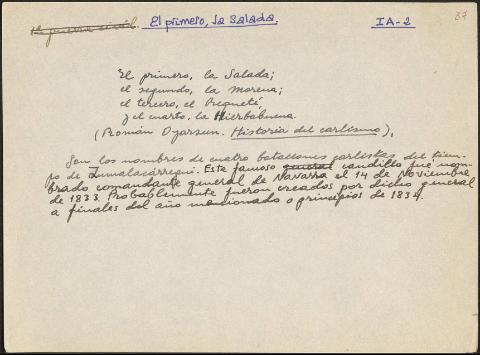 La guerra civil. El primero, la Salada. IA-2 37
El primero, la Salada;
el segundo, la Morena;
el tercero, el Requeté,
y el cuarto, la Hierbabuena.
(Román Oyarzun. Historia del carlismo),
Son los nombres de cuatro batallones carlistas del tiem-
po de Zumalacárregui. Este famoso general caudillo fué nom-
brado comandante general de Navarra el 14 de Noviembre
de 1833. Probablemente fueron creados por dicho general
a finales del año mencionado o principios de 1834.